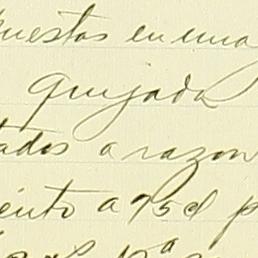 puestos en una
quijada
tados a razon
iento a 95 cl p